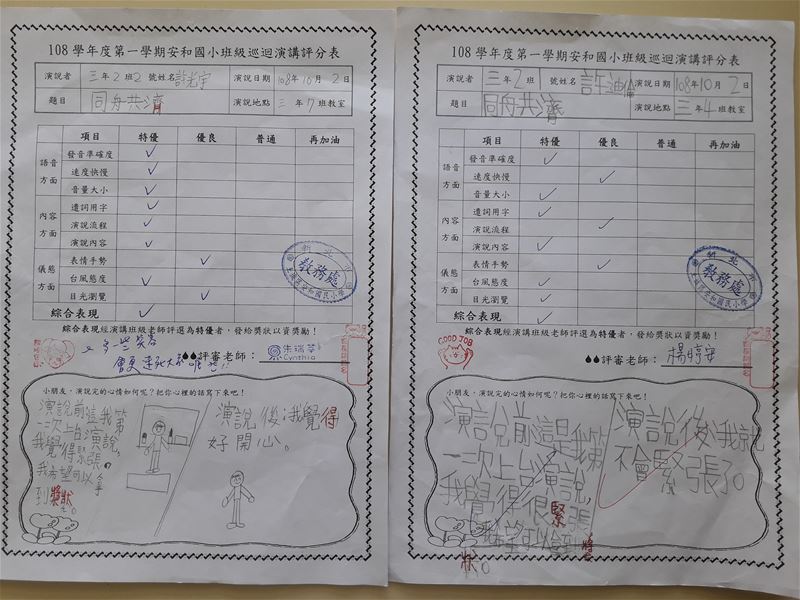 108 學年度第一學期安和國小班級巡迴演講評分表
演說者 三年2班2號姓名 演說日期 108年10月2日
題目 同舟共濟 演說地點 三年7班教室
項目 特優 優良 普通 再加油
語音方面
發音準確度 ✓
速度快慢 ✓
音量大小 ✓
內容方面
遣詞用字 ✓
演說流程 ✓
演說內容 ✓
儀態方面
表情手勢 ✓
台風態度 ✓
目光瀏覽 ✓
綜合表現 ✓
教務處
綜合表現經演講班級老師評選為特優者，發給獎狀以資獎勵！
評審老師：
Cynthia
小朋友，演說完的心情如何呢？把你心裡的話寫下來吧！
演說前這我第
一次上台演說，
我覺得緊張，
我希望可以拿
到獎狀。
演說後：我覺得
好開心。
108 學年度第一學期安和國小班級巡迴演講評分表
演說者 三年2班 號姓名 演說日期 108年10月2日
題目 同舟共濟 演說地點 三年4班教室
項目 特優 優良 普通 再加油
語音方面
發音準確度 ✓
速度快慢 ✓
音量大小 ✓
內容方面
遣詞用字 ✓
演說流程 ✓
演說內容 ✓
儀態方面
表情手勢 ✓
台風態度 ✓
目光瀏覽 ✓
綜合表現 ✓
新北市
教務處
綜合表現經演講班級老師評選為特優者，發給獎狀以資獎勵！
GOOD JOB
評審老師：
小朋友，演說完的心情如何呢？把你心裡的話寫下來吧！
演說前這是我第
一次上台演說，
我覺得很緊張
我希望可以拿到獎
狀。
演說後我就
不會緊張了。